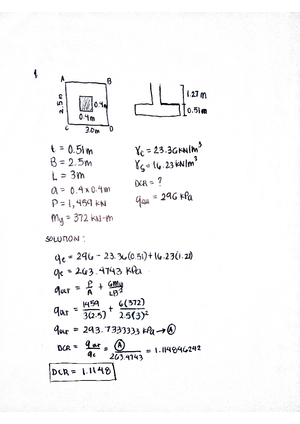 A B
2.5m
0.4m
0.4m
C 3.0m D
1.27m
0.51m
t = 0.51m
B = 2.5m
L = 3m
a = 0.4 x 0.4m
P = 1,459 kN
My = 372 kN-m
γc = 23.36 kN/m³
γs = 16.23 kN/m³
DCR = ?
qau = 296 kPa
SOLUTION:
qe = 296 - 23.36(0.51) + 16.23(1.27)
qe = 263.4743 kPa
qar = P/A + 6My/LB²
qar = 1459/3(2.5) + 6(372)/2.5(3)²
qar = 293.7333333 kPa → A
DCR = qar/qe = A/263.4743 = 1.114846242
DCR = 1.1148